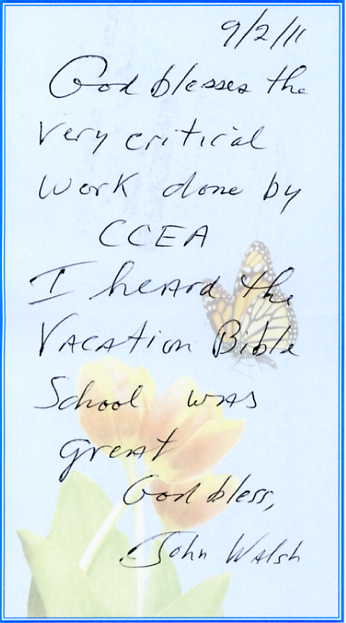 9/2/11
God blesses the
very critical
work done by
CCEA
I heard the
Vacation Bible
School was
great
God bless,
John Walsh